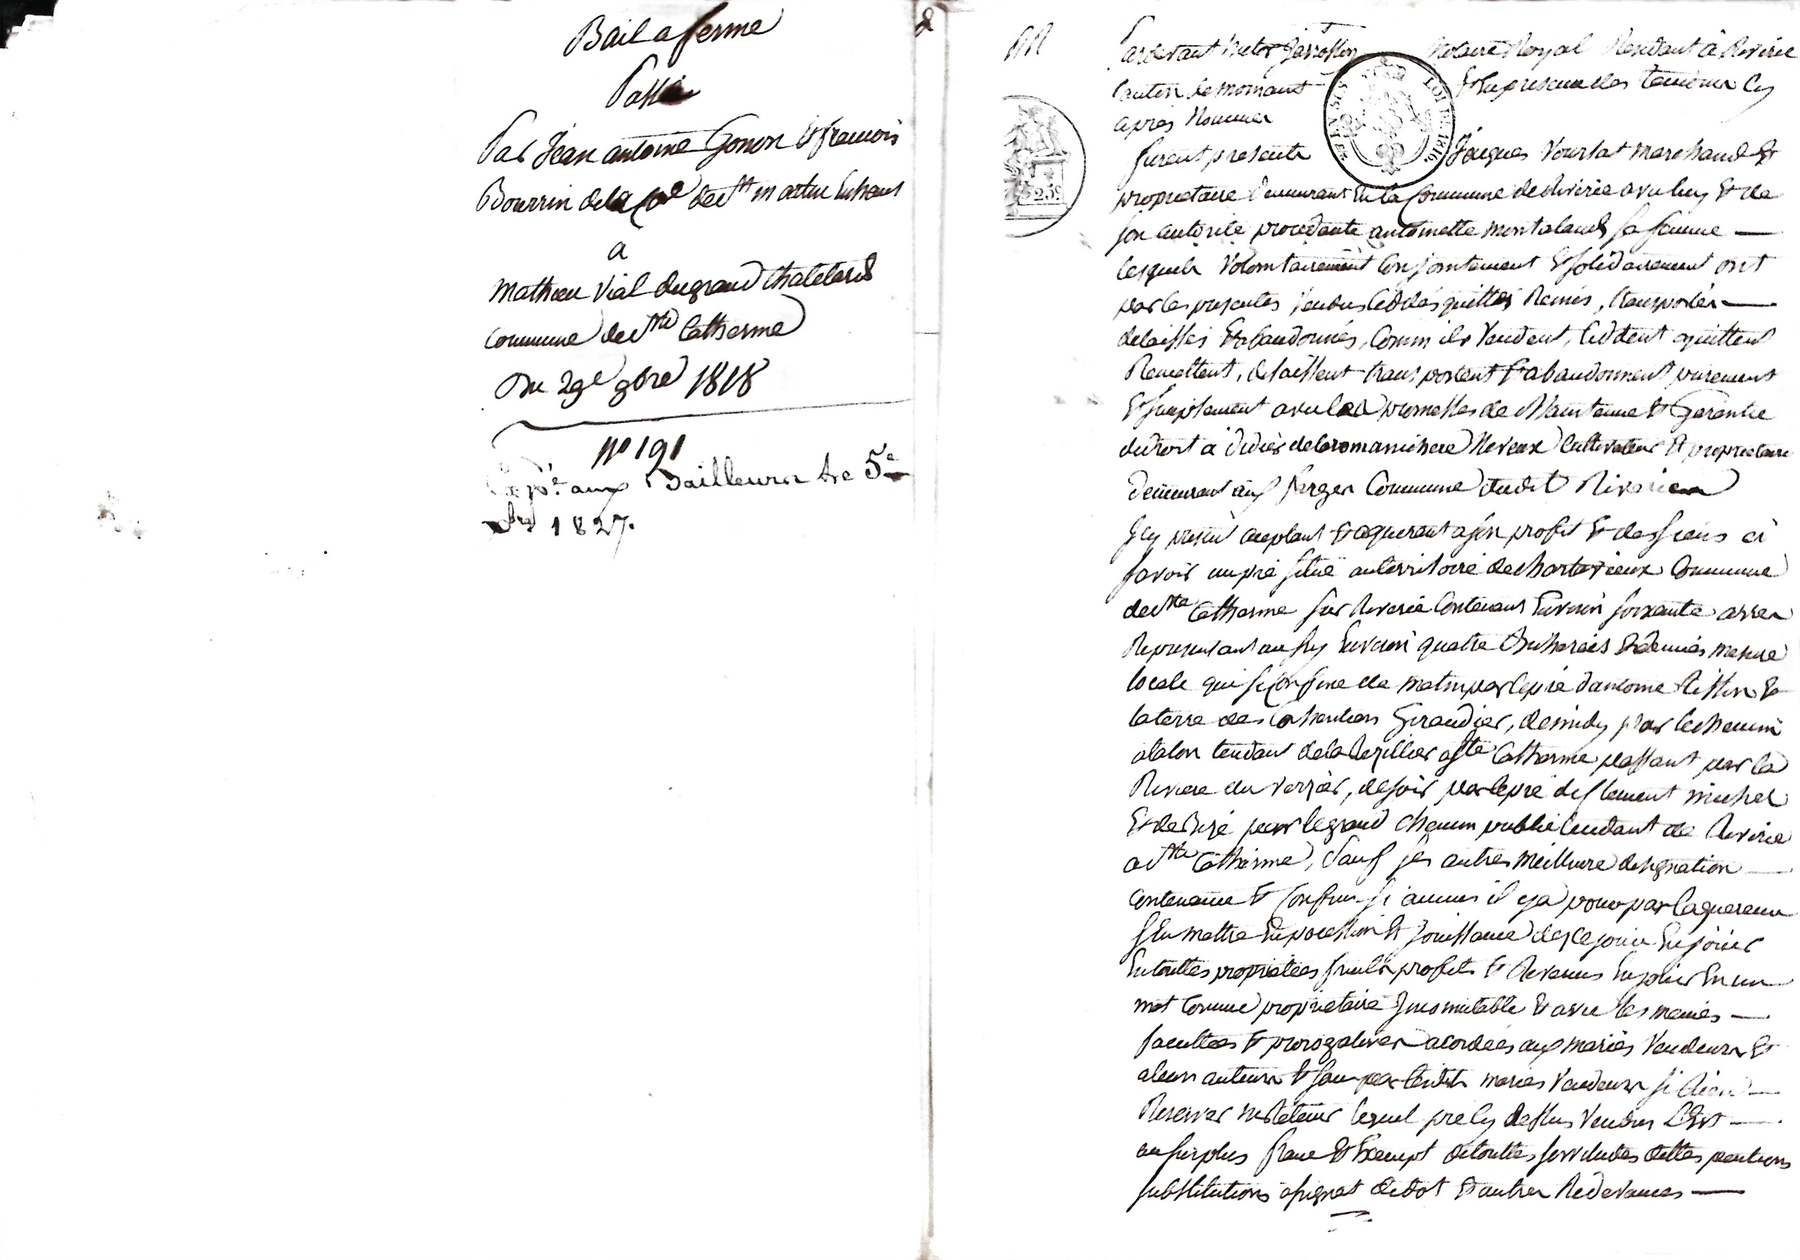 Bail a ferme
Passé
Par Jean antoine Gonon & francois
Bourrin de la Cne de St martin Enhaut
a
mathieu Vial du grand Chatelard
commune de Ste Catherine
Du 29e 9bre 1818
N° 191
Expé. aux Bailleurs le 5e
1827.
2
Pardevant Notaire Royal Résidant à Riverie
canton de mornant & En presence des temoins Cy
après Nommés
furent présents Jacques Vourlat marchand &
proprietaire demeurant En la Commune de Riverie & de
son autorité procedante antoinette montaland sa femme —
lesquels Volontairement Conjointement & solidairement ont
par les presentes Vendus Céddés quittés Remis, transportés —
délaissés & abandonnés, Comm ils Vendent, Céddent quittent
Remettent, délaissent transportent & abandonnent purement
& simplement avec les promesses de Maintenue & Garantie
de droit à Didier cultivateur & proprietaire
demeurant aux farges Commune dudit Riverie
Icy présent aceptant & aquerant a son profit & des siens ci
savoir un pré situé au territoire de Commune
de Ste Catherine sur Riverie Contenant Environ soixante ares
Representant au Environ quatre Bicherées & demies mesure
locale qui se Confine de matin par le pré d'antoine &
la terre des Giraudier, de midy par le chemin
tendant de la a Ste Catherine passant par la
Riviere du de soir par le pré de Clement michel
& de Bize par le grand chemin public tendant de Riverie
a Ste Catherine, Sauf ses autres meilleure designation —
Contenance & Confins si aucuns il y a pour par laquereur
s'En mettre En possession & Jouissance de ce jour En jouir
En touttes proprietées fruits profits & Revenus En jouir En un
mot Comme proprietaire Incomutable & avec les memes —
facultées & prerogatives acordées aux mariés Vendeurs &
a leurs auteurs & sans par lesdits mariés Vendeurs se Rien —
Reserver ni Retenir lequel pré Cy dessus Vendus Est —
au surplus franc & Exempt de touttes servitudes dettes pentions
substitutions de dot & autres Redevances —